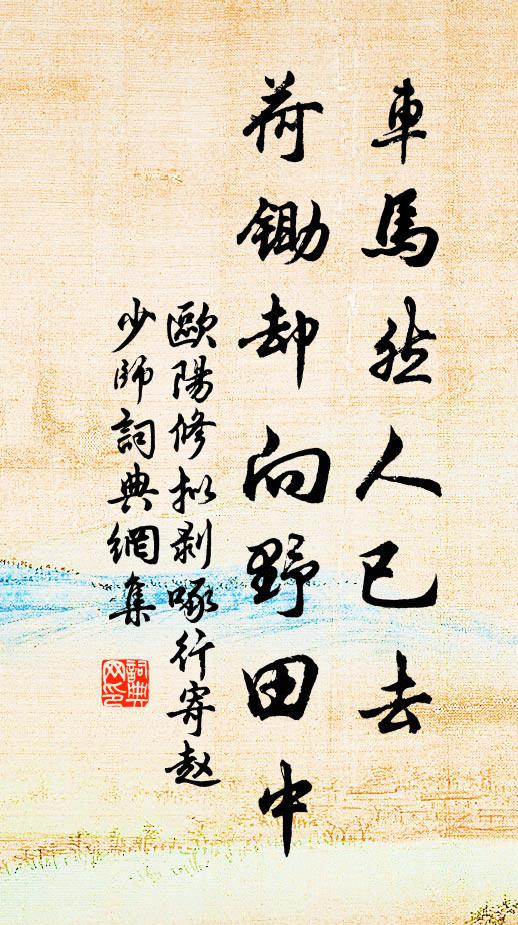 車馬愁人已去
荷鋤却向野田中
歐陽修拟剥啄行寄趙
少師詞典網集
詞典
网印